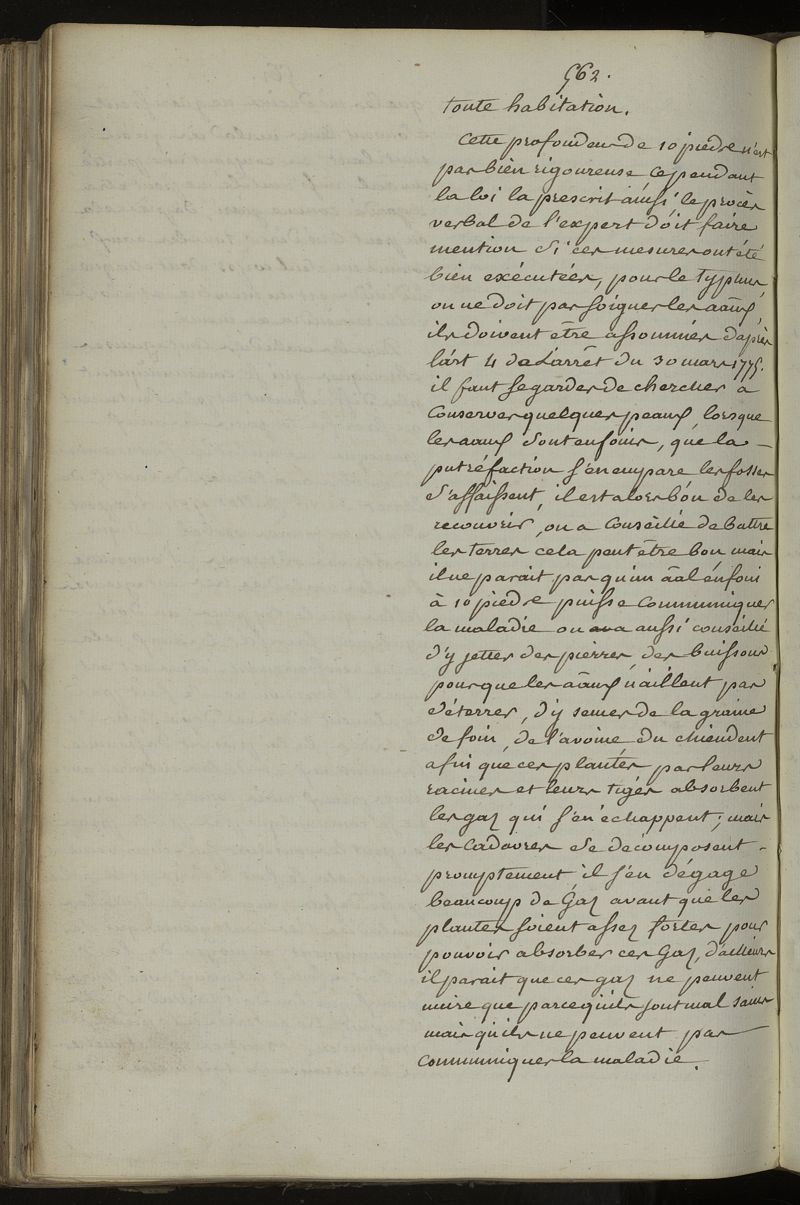 562.
toute habitation.
Cette profondeur de 10 pieds n'est
pas bien rigoureuse cependant
la loi la prescrit ainsi le procès
verbal de l'expert doit faire
mention si ces mesures ont été
bien exécutées, pour le typhus
on ne doit pas soigner les aãux,
ils doivent être assommés d'après
l'art 4 de L'arrêt du 30 mars 1775.
il faut se garder de chercher a
Conserver quelques peaux, lorsque
les aaux sont enfouis, que la -
putréfaction s'en empare les fosses
s'affaissent, il est alors bon de les
recouvrir, on a Conseillé de battre
les terres cela peut être bon mais
il ne parait pas qu'un ãal enfoui
à 10 pieds puisse Communiquer
la maladie on a aussi conseillé
d'y jetter des pierres, des buissons
pour que les aãux n'aillent pas
déterrer, d'y semer de la graine
de foin, de l'avoine du chiendent
afin que ces plantes par leurs
racines et leurs tiges absorbent
les gaz qui s'en échappent; mais
les Cadavres se décomposent -
promptement, il s'en dégage
beaucoup de Gaz avant que les
plantes soient assez fortes pour
pouvoir absorber ces Gaz, d'ailleurs
il parait que ces gaz ne peuvent
nuire que parcequ'ils sont mal sains
mais qu'ils ne peuvent pas
Communiquer la maladie.